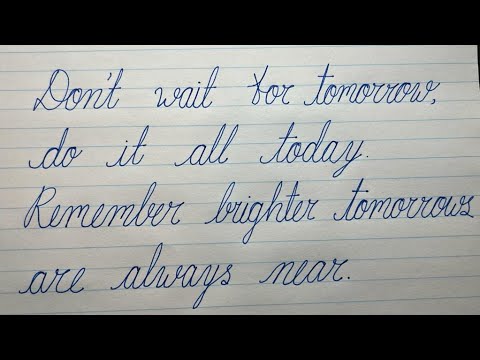 Don't wait for tomorrow,
do it all today.
Remember brighter tomorrows
are always near.